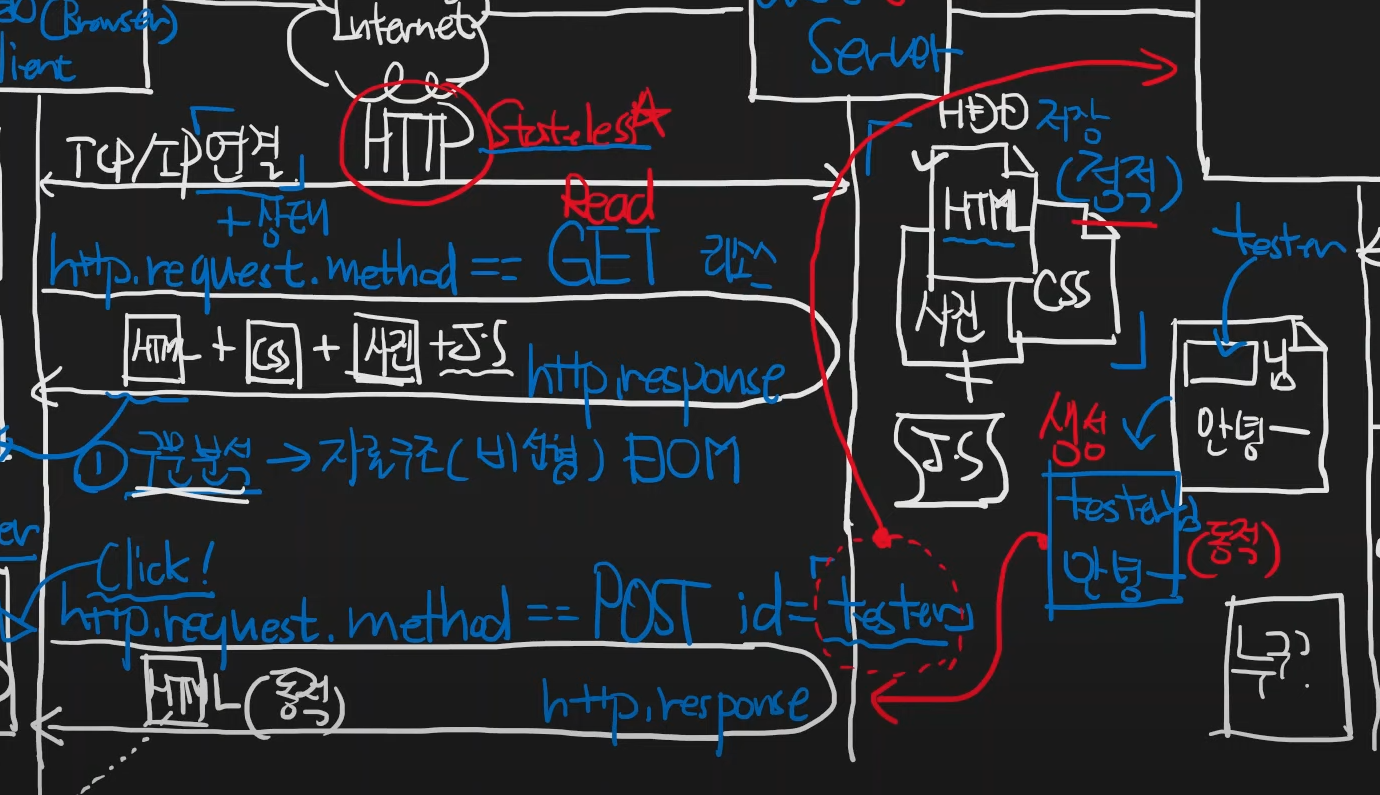 (Browser)
Client
Internet
Server
HTTP
Stateless
TCP/IP 연결
+ 상태
Read
http.request.method == GET 리소스
HTML + CSS + 사진 + J.S
http.response
① 구문분석 → 자료구조(비선형) DOM
Click!
http.request.method == POST id=tester
HTML (동적)
http.response
HDD 저장
(정적)
HTML
CSS
사진
+
J.S
tester
님
안녕ㅡ
생성
tester님
안녕ㅡ
(동적)
누구?